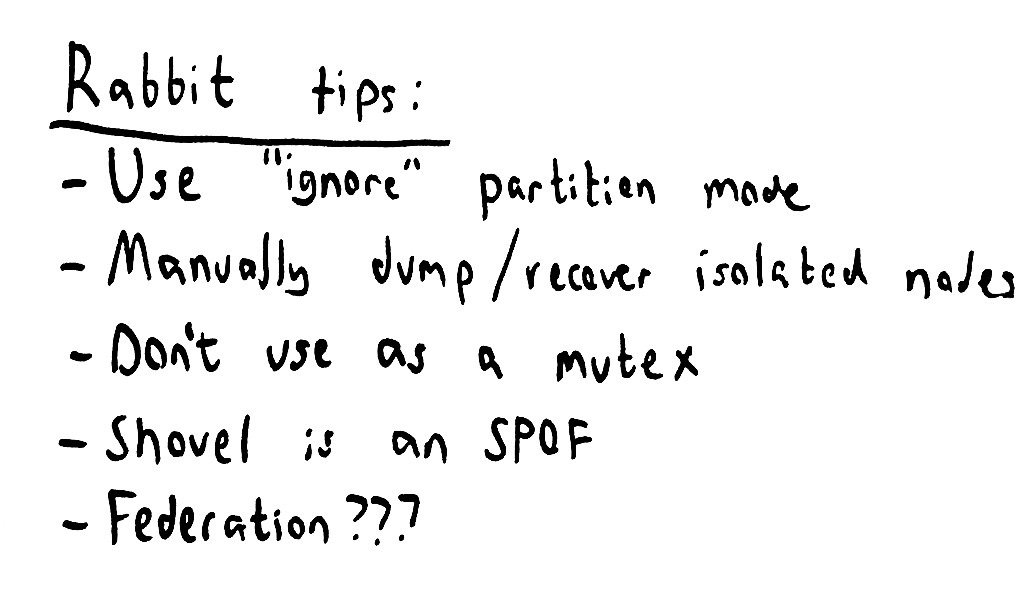 Rabbit tips:
- Use "ignore" partition mode
- Manually dump/recover isolated nodes
- Don't use as a mutex
- Shovel is an SPOF
- Federation???